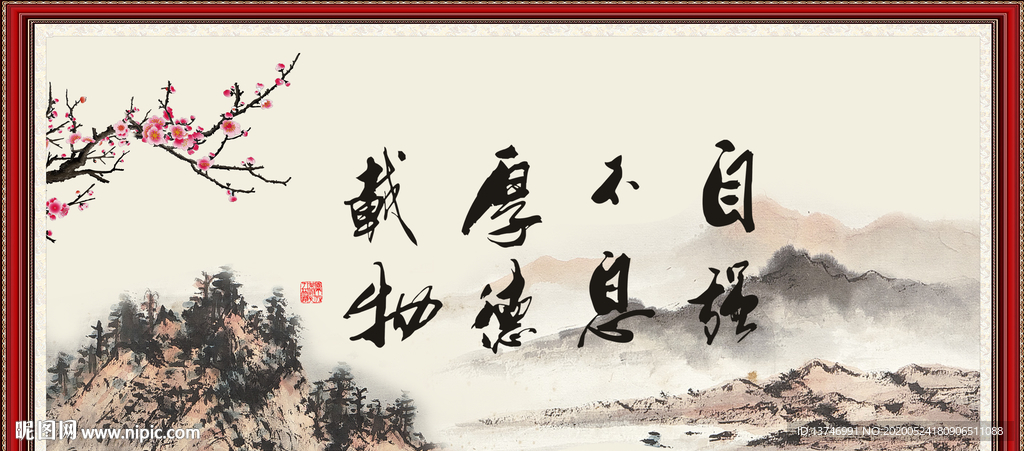 自强
不息
厚德
載物
昵图网 www.nipic.com
ID:13746991 NO:20200524180906511088